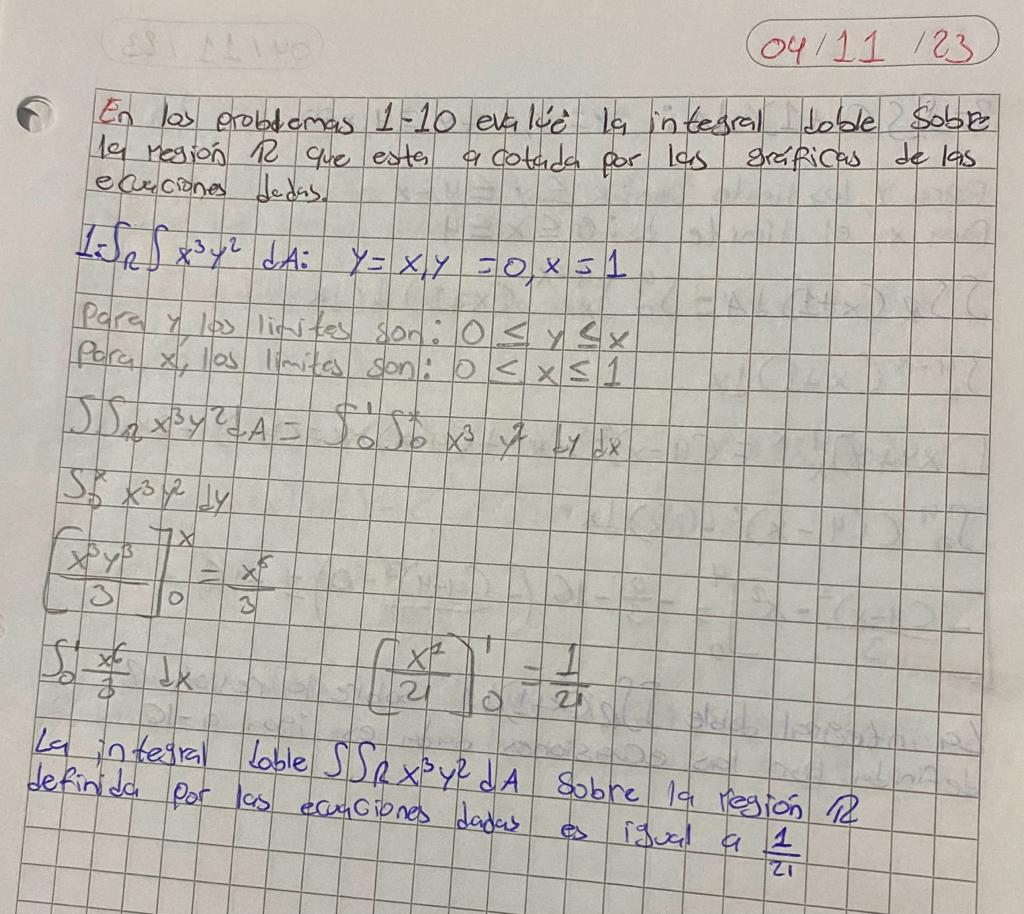 04/11/23
En los problemas 1-10 evalúe la integral doble sobre
la región R que esta acotada por las gráficas de las
ecuaciones dadas.
1.- ∫R∫ x³y² dA: y = x, y = 0, x = 1
Para y, los limites son: 0 ≤ y ≤ x
Para x, los limites son: 0 ≤ x ≤ 1
∫∫R x³y² dA = ∫₀¹ ∫₀ˣ x³ y² dy dx
∫₀ˣ x³y² dy
[x³y³/3]₀ˣ = x⁶/3
∫₀¹ x⁶/3 dx [x⁷/21]₀¹ = 1/21
La integral doble ∫∫R x³y² dA sobre la región R
definida por las ecuaciones dadas es igual a 1/21